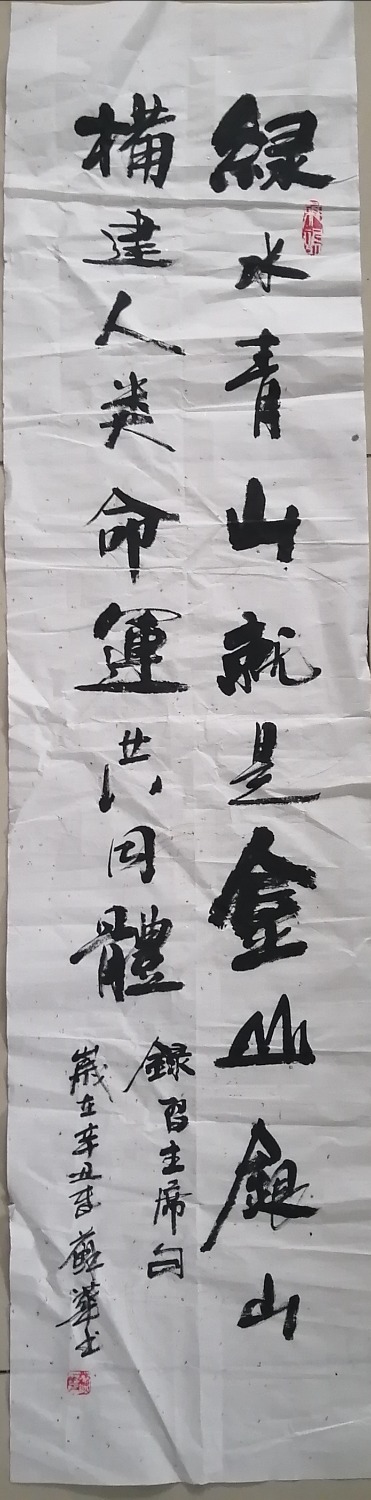 綠水青山就是金山銀山
構建人类命運共同體
録習主席句
歲在辛丑春蘇華书